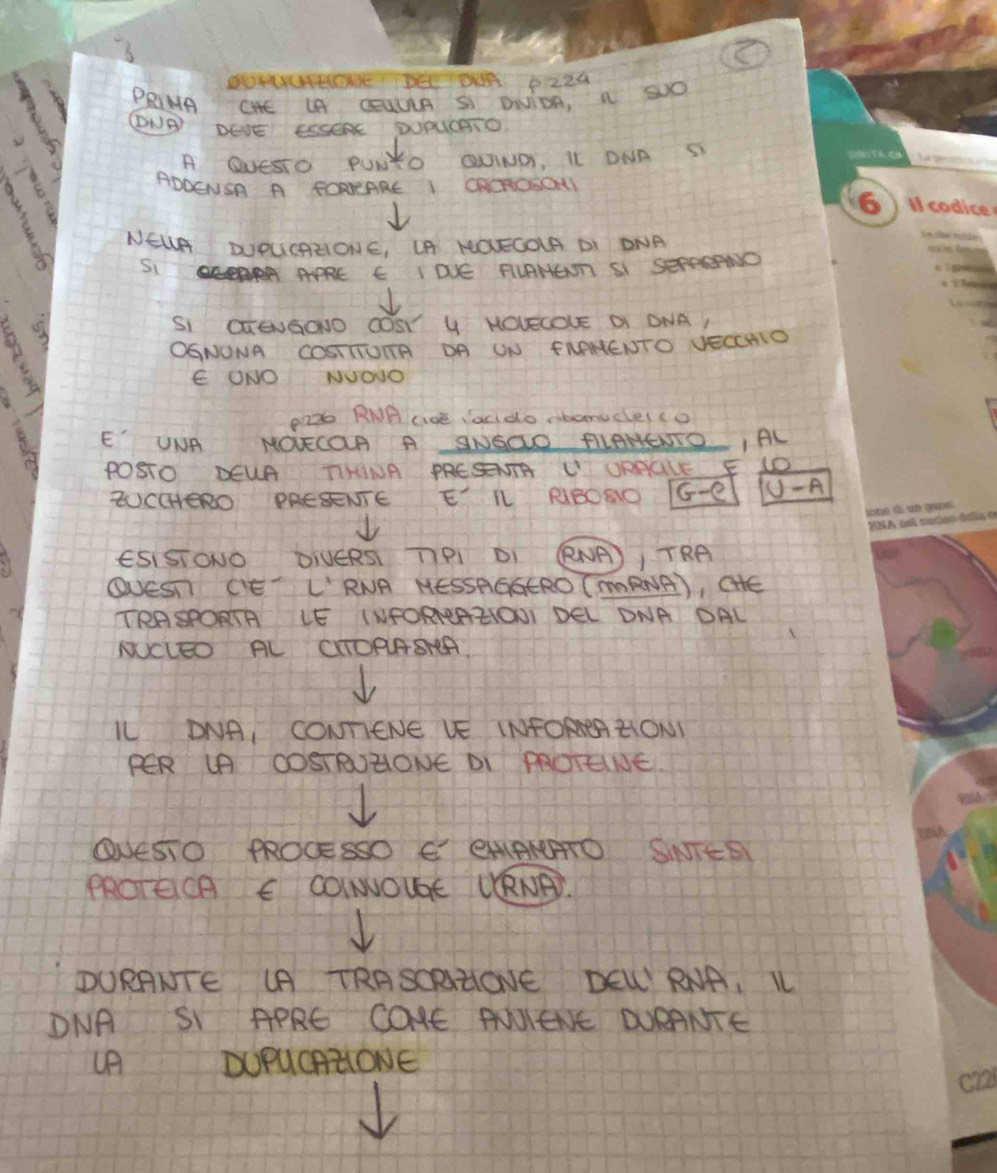 2
DUPLICAZIONE DEL DNA p.224
PRIMA CHE LA CELLULA SI DIVIDA, IL SUO
DNA DEVE ESSERE DUPLICATO.
A QUESTO PUNTO QUINDI, IL DNA SI
ADDENSA A FORMARE I CROMOSOMI
NELLA DUPLICAZIONE, LA MOLECOLA DI DNA
SI APRE E I DUE FILAMENTI SI SEPARANO
SI OTTENGONO COSI' 4 MOLECOLE DI DNA,
OGNUNA COSTITUITA DA UN FILAMENTO VECCHIO
E UNO NUOVO
p.226 RNA cioè l'acido ribonucleico
E' UNA MOLECOLA A SINGOLO FILAMENTO, AL
POSTO DELLA TIMINA PRESENTA L'URACILE E LO
ZUCCHERO PRESENTE E' IL RIBOSIO G-C U-A
ESISTONO DIVERSI TIPI DI RNA, TRA
QUESTI C'E' L'RNA MESSAGGERO (mRNA), CHE
TRASPORTA LE INFORMAZIONI DEL DNA DAL
NUCLEO AL CITOPLASMA.
IL DNA, CONTIENE LE INFORMAZIONI
PER LA COSTRUZIONE DI PROTEINE.
QUESTO PROCESSO E' CHIAMATO SINTESI
PROTEICA E COINVOLGE L'RNA.
DURANTE LA TRASCRIZIONE DELL'RNA, IL
DNA SI APRE COME AVVIENE DURANTE
LA DUPLICAZIONE
6 Il codice